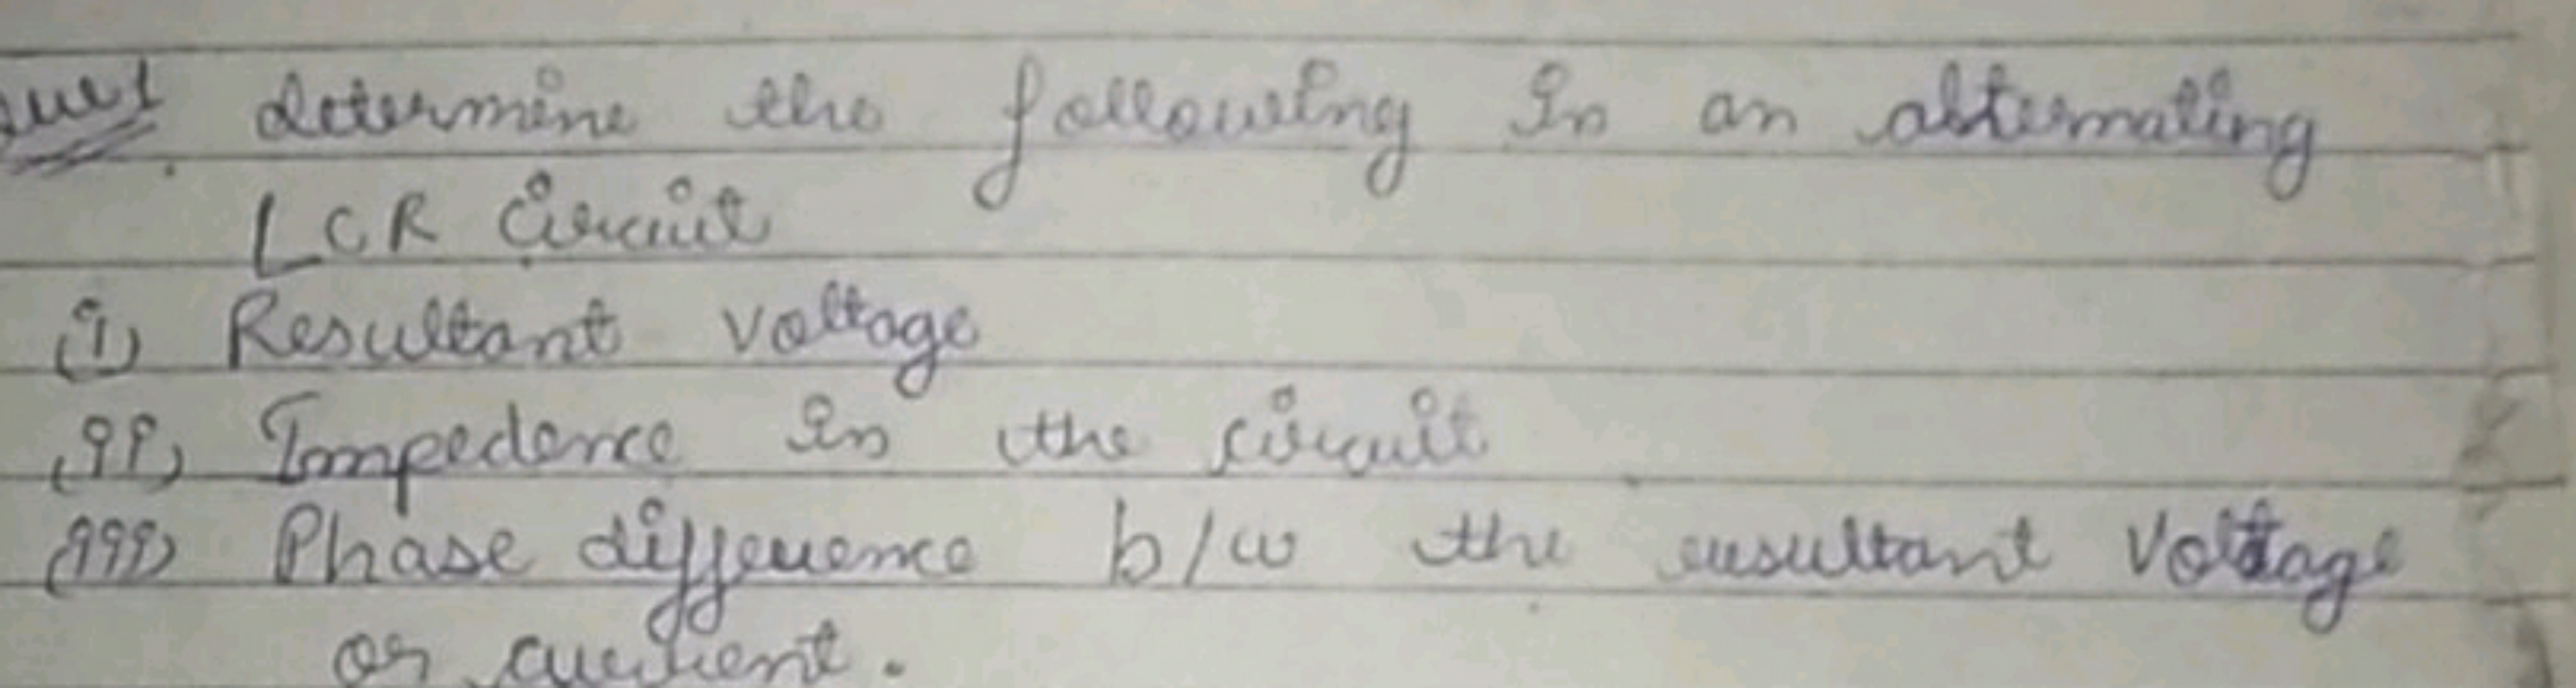 Ques1 determine the following in an alternating
LCR circuit
(i) Resultant voltage
(ii) Impedence in the circuit
(iii) Phase difference b/w the resultant voltage
or current.